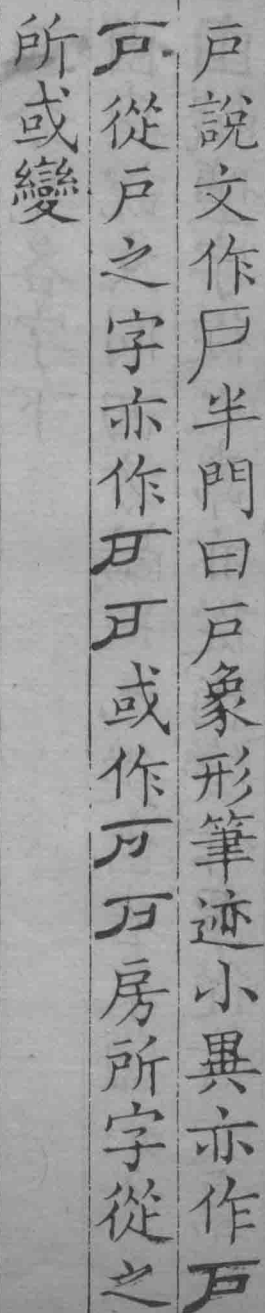 戶說文作戶半門曰戶象形筆迹小異亦作戶
戶從戶之字亦作或作房所字從之
所或變